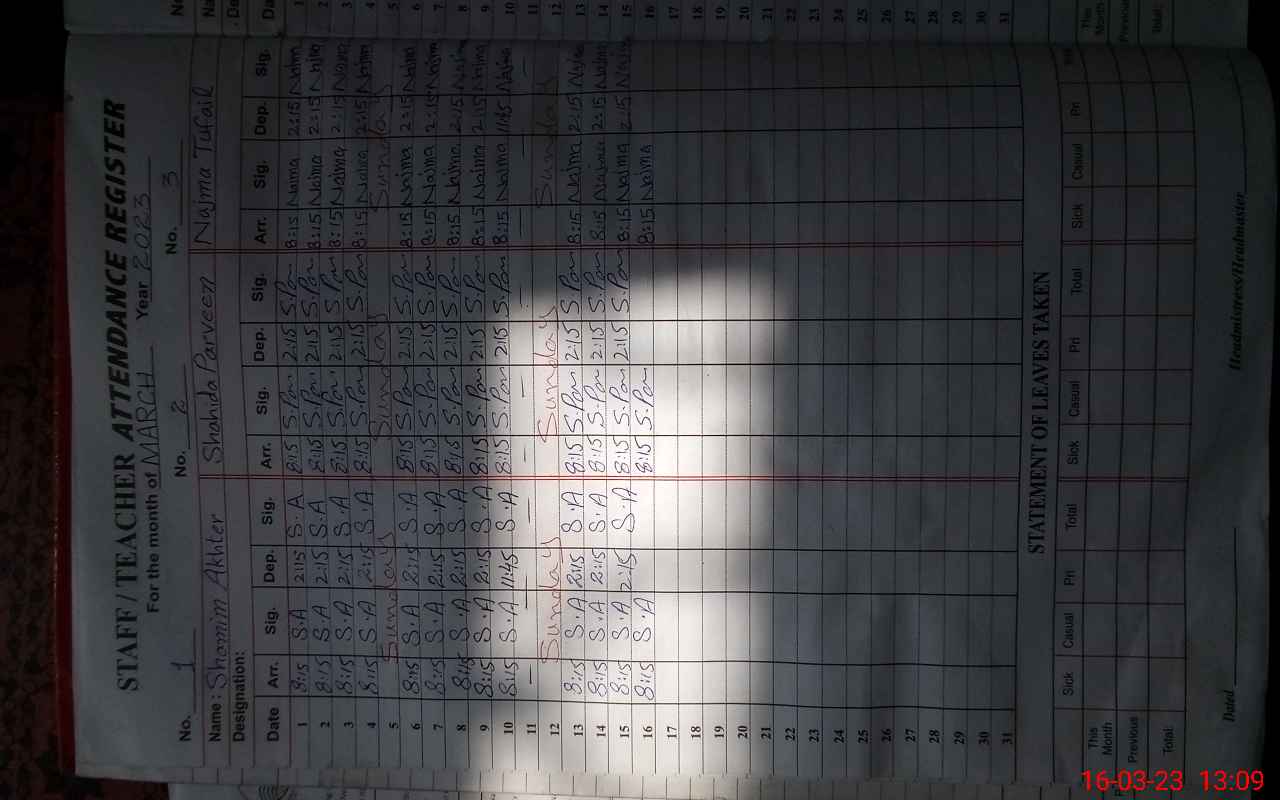 STAFF / TEACHER ATTENDANCE REGISTER
For the month of MARCH Year 2023
No. 1 No. 2 No. 3
Name : Shamim Akhter Shahida Parveen Najma Tufail
Designation:
Date Arr. Sig. Dep. Sig. Arr. Sig. Dep. Sig. Arr. Sig. Dep. Sig.
1 8:15 S.A 2:15 S.A 8:15 2:15 8:15 Najma 2:15
2 8:15 S.A 2:15 S.A 8:15 2:15 8:15 Najma 2:15
3 8:15 S.A 2:15 S.A 8:15 2:15 8:15 Najma 2:15
4 8:15 S.A 2:15 S.A 8:15 2:15 8:15 Najma 2:15
5 Sunday Sunday Sunday
6 8:15 S.A 2:15 S.A 8:15 2:15 8:15 Najma 2:15
7 8:15 S.A 2:15 S.A 8:15 2:15 8:15 Najma 2:15
8 8:15 S.A 2:15 S.A 8:15 2:15 8:15 Najma 2:15
9 8:15 S.A 2:15 S.A 8:15 2:15 8:15 Najma 2:15
10 8:15 S.A 11:45 S.A 8:15 8:15 Najma 11:45 Najma
11 — — — — — —
12 Sunday Sunday Sunday
13 8:15 S.A 2:15 S.A 8:15 2:15 8:15 Najma 2:15
14 8:15 S.A 2:15 S.A 8:15 2:15 8:15 Najma 2:15
15 8:15 S.A 2:15 S.A 8:15 2:15 8:15 Najma 2:15
16 8:15 S.A 8:15 8:15 Najma
17
18
19
20
21
22
23
24
25
26
27
28
29
30
31
STATEMENT OF LEAVES TAKEN
Sick Casual Pri Total Sick Casual Pri Total Sick Casual Pri
This Month
Previous
Total:
Dated Headmistress/Headmaster
16-03-23 13:09